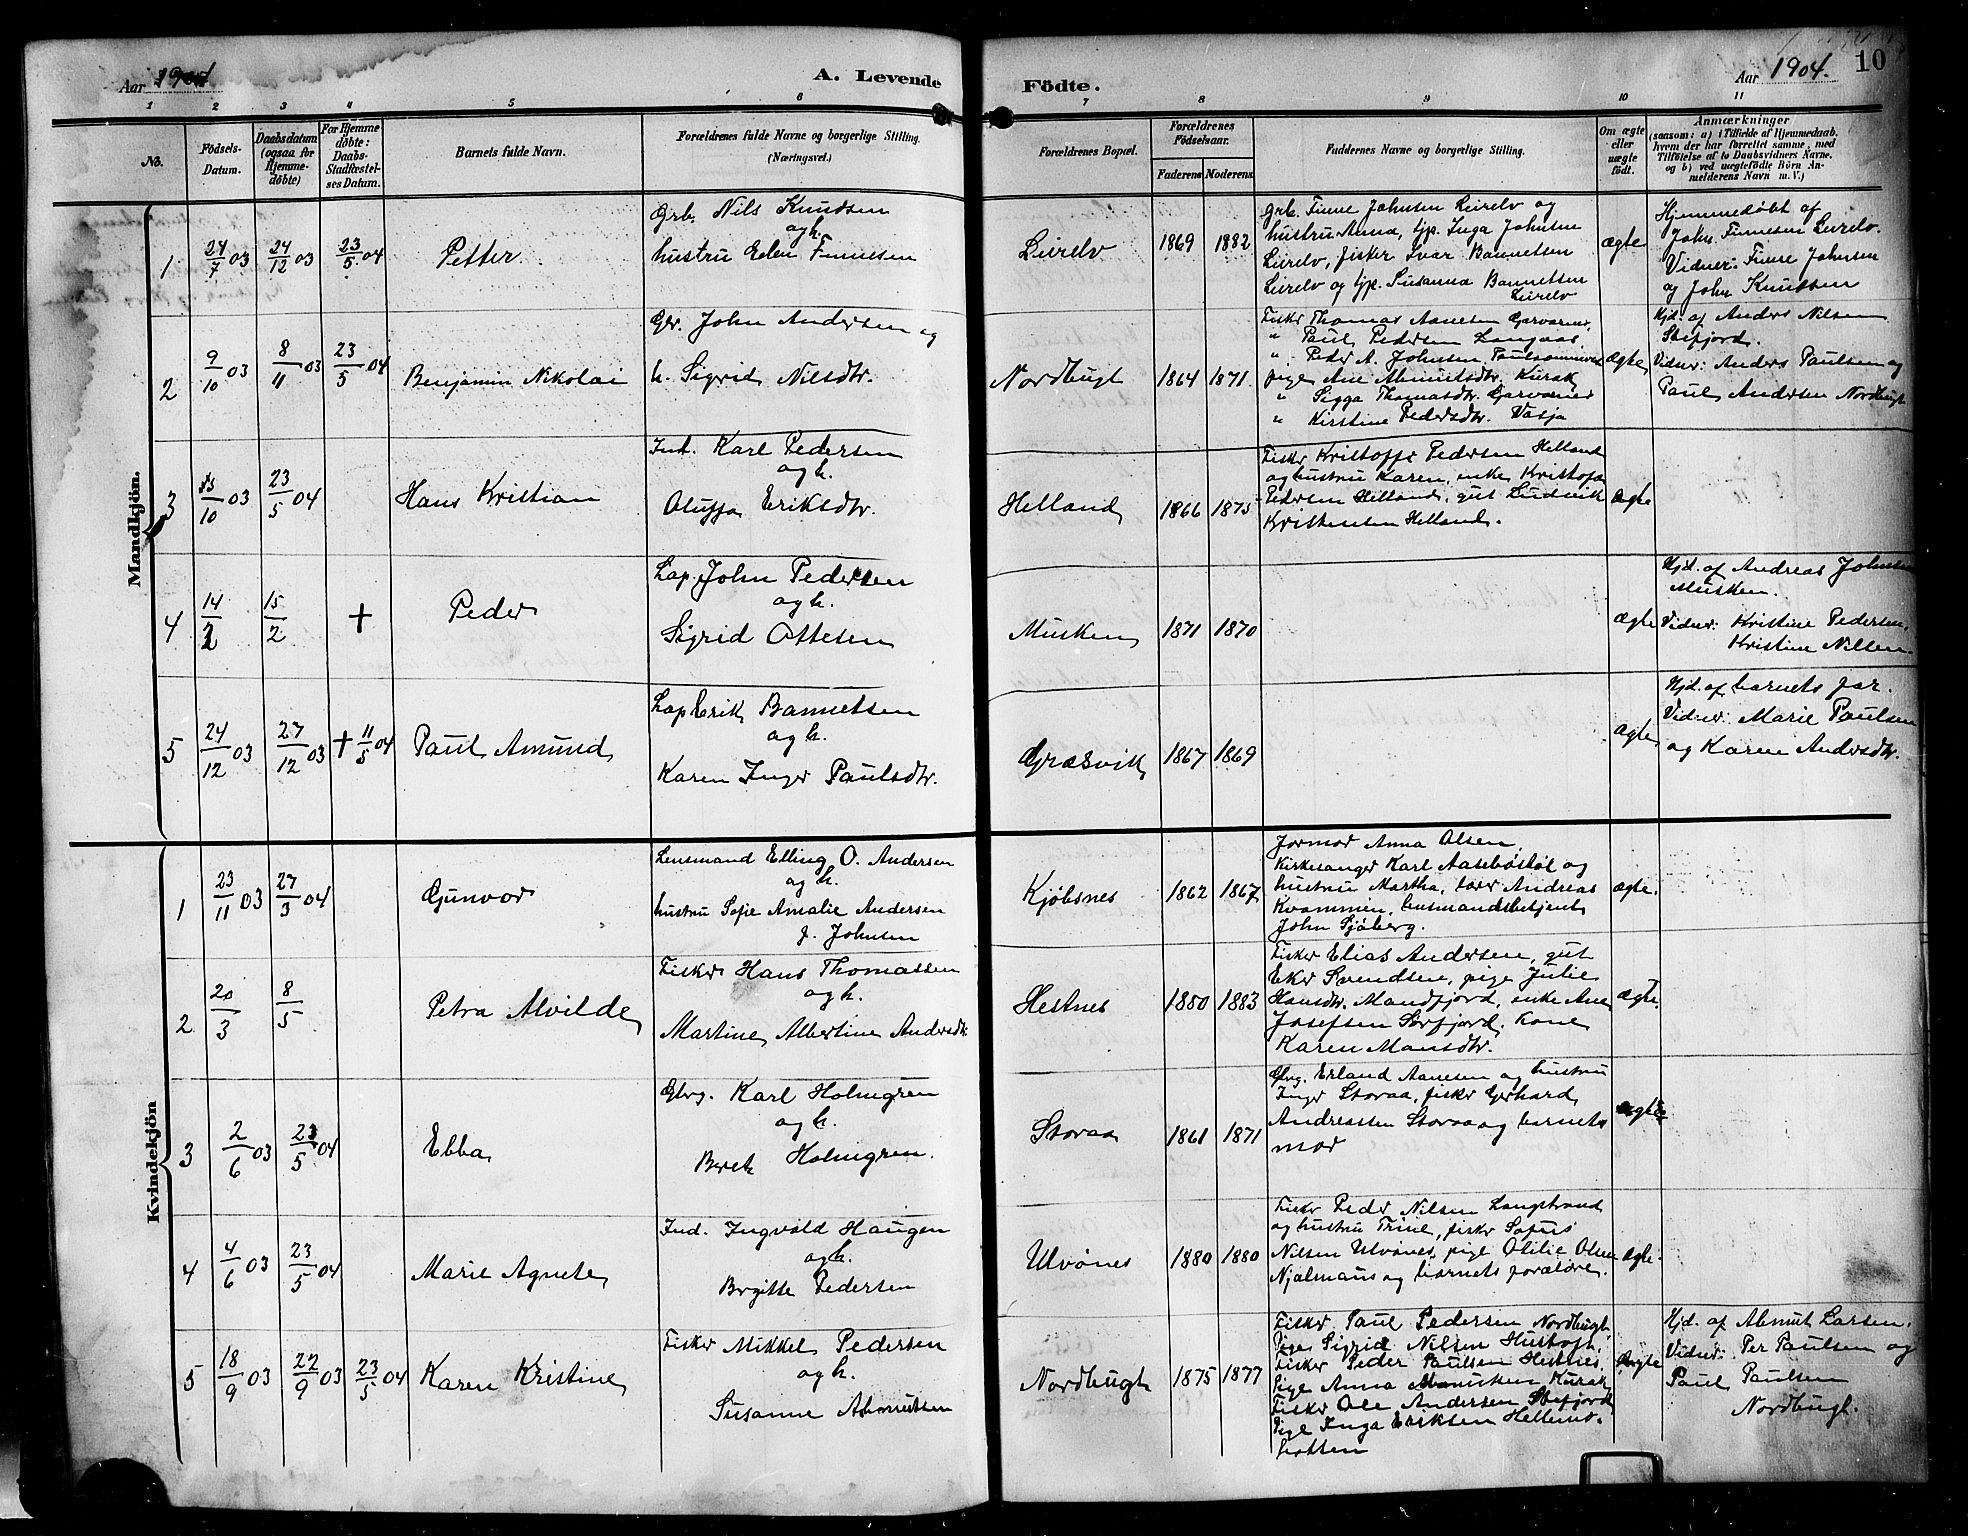 Aar 1904
A. Levende
Födte.
Aar 1904.
10
1 2 3 4 5 6 7 8 9 10 11
No.
Födsels-
Datum.
Daabsdatum
(ogsaa for
Hjemme-
döbte)
For Hjemme
døbte:
Daabs-
Stadfæstel-
ses Datum.
Barnets fulde Navn.
Forældrenes fulde Navne og borgerlige Stilling.
(Næringsvei.)
Forældrenes Bopæl.
Forældrenes
Födselsaar.
Faderens
Moderens
Faddernes Navne og borgerlige Stilling.
Om ægte
eller
uægte
födt.
Anmærkninger
(saasom: a) i Tilfælde af Hjemmedaab,
hvem der har forrettet samme, med
Tilföielse af to Daabsvidners Navne,
og b) ved uægtefödte Börn An-
melderens Navn m. V.)
Mandkjön.
1
24/7 03
24/12 03
23/5 04
Petter
Grb. Nils Knudsen
og h.
hustru Elen Finnesen
Leirelv
1869
1882
Grb. Finne Johnsen Leirelv og
hustru Anna, tjp. Inga Johnsen
Leirelv, fisker Ivar Bannetsen
Leirelv og tjp. Susanna Bannetsen
Leirelv
ægte
Hjemmedøbt af
John Finnesen Leirelv.
Vidner: Finne Johnsen
og John Knudsen
2
9/10 03
8/11 03
23/5 04
Benjamin Nikolai
Gbr. John Andersen og
h. Sigrid Nilsdtr.
Nordbugt
1864
1871.
Fisker Thomas Aanesen Gjervarnes,
" Paul Pedersen Langaas,
" Peder A. Johnsen
pige Ane Abmutsdtr. Kurak,
" Sigga Thomasdtr. Gjervarnes
" Kirstine Pedersdtr. Vasja
ægte
Hjd. af Anders Nilsen
Stefjord.
Vidner: Anders Paulsen og
Paul Andersen Nordbugt
3
10 03
23/5 04
Hans Kristian
Ind. Karl Pedersen
og h.
Oluffa Eriksdtr.
Helland
1866
1875
Fisker Kristoffer Pedersen Helland
og hustru Karen, enke Kristofa
Pedersen Helland, gut Ludvik
Kristensen Helland.
ægte
4
14/2
15/2
+
Peder
Lap. John Pedersen
og h.
Sigrid Ottesen
Musken
1871
1870
ægte
Hjd. af Andreas Johnsen
Musken.
Vidner: Kristine Pedersen,
Kristine Nilsen.
5
24/12 03
27/12 03
+ 11/5 04
Paul Amund
Lap Erik Bannetsen
og h.
Karen Inger Paulsdtr.
Græsvik
1867
1869
ægte
Hjd. af barnets far.
Vidner: Marie Paulsen
og Karen Andersdtr.
Kvindekjön
1
23/11 03
27/3 04
Gunvor
Lensmand Elling O. Andersen
og h.
hustru Sofie Amalie Andersen
f. Johnsen
Kjøbsnes
1862
1867
Jormor Anna Olsen,
Kirkesanger Karl Aasebøstøl og
hustru Martha, lærer Andreas
Kvammen, lensmandsbetjent
John Sjøberg.
ægte.
2
20/3
8/5
Petra Alvilde
Fisker Hans Thomassen
og h.
Martine Albertine Andersdtr.
Hestnes
1880
1883
Fisker Elias Andersen, gut
Eker Svendsen, pige Julie
Hansdtr. Mandfjord, enke Ane
Josefsen Sørfjord, kone
Karen Mansdtr.
ægte.
3
2/6 03
23/5 04
Ebba
Gbrg. Karl Holmgren
og h.
Beret Holmgren.
Storaa
1861
1871
Gbrg. Erland Aanesen og hustru
Inger Storaa, fisker Gerhard
Andreassen Storaa og barnets
mor
ægte
4
4/6 03
23/5 04
Marie Agnete
Ind. Ingvald Haugen
og h.
Birgitte Pedersen
Ulvønes
1880
1880
Fisker Peder Nilsen Langstrand
og hustru Trine, fisker Sofus
Nilsen Ulvønes, pige Otilie Olsen
Njalmans og barnets forældre.
ægte.
5
18/9 03
22/9 03
23/5 04
Karen Kristine
Fisker Mikkel Pedersen
og h.
Susanne Abmutsen
Nordbugt
1875
1877
Fisker Paul Pedersen Nordbugt,
Pige Sigrid Nilsen Hustoft,
Fisker Peder Paulsen Hestnes
Pige Anna Kurak
Fisker Ole Andersen Stefjord
Pige Inga Eriksen Hellemo-
botten
ægte
Hjd. af Abmut Larsen.
Vidner: Per Paulsen og
Paul Paulsen
Nordbugt.